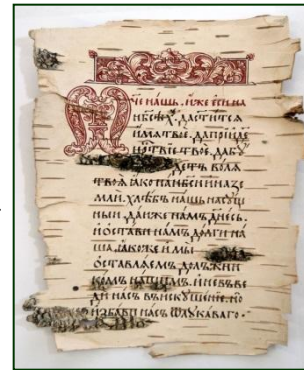 Ѿче нашъ. иже еси на
нб҃сѣхъ, да ст҃итсѧ
имѧ твое. да прїиде
црⷭ҇твїе твое, да бꙋ
детъ волѧ
твоѧ ꙗко на нб҃си и на зе
мли. хлѣбъ нашъ насꙋщ
ныи даждь намъ днесь.
и остави намъ долги на
ша. ꙗкоже и мы
оставлѧемъ должни
комъ нашимъ. и невъве
ди насъ въ искꙋшение. но
избави насъ ѿ лꙋкаваго·